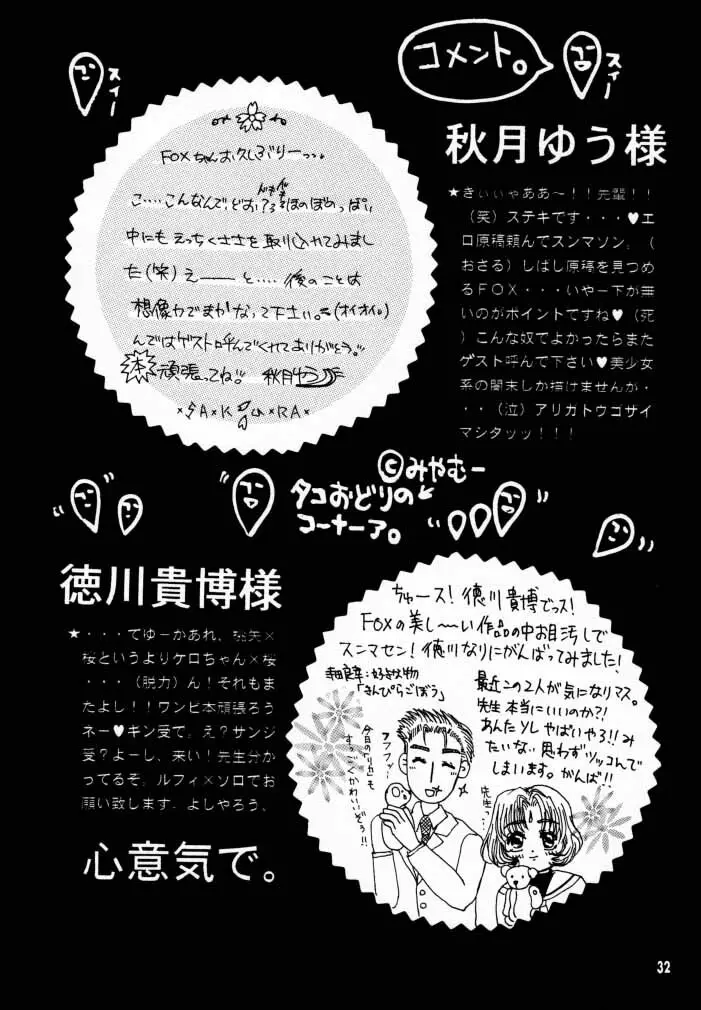 コメント。
スィー
スィー
秋月ゆう様
★きぃぃゃああ～！！先輩！！
（笑）ステキです・・・♥エ
ロ原稿頼んでスンマソン。（
おさる）しばし原稿を見つめ
るＦＯＸ・・・いやー下が無
いのがポイントですね♥（死
）こんな奴でよかったらまた
ゲスト呼んで下さい♥美少女
系の闇末しか描けませんが・
・・（泣）アリガトウゴサイ
マシタッッ！！！
FOXちゃんお久しぶりーっ。
こ…こんなんでどお？ ほのぼのめっぱい
中にもえっちくささを取り入れてみまし
た(笑) え――と…。後のことは
想像力でまかなって下さい。(オイオイ。)
んではゲスト呼んでくれてありがとう。
本 頑張ってね。 秋月ゆう
×SAKURA×
©みやむー
タコおどりの
コーナーア。
徳川貴博様
★・・・てゆーかあれ、桃矢×
桜というよりケロちゃん×桜
・・・（脱力）ん！それもま
たよし！！ワンピ本頑張ろう
ネー♥キン受で。え？サンジ
受？よーし、来い！先生分か
ってるぞ。ルフィ×ソロでお
願い致します。よしやろう、
心意気で。
ちゅース！徳川貴博でっス！
FOXの美し～い作品の中お目汚しで
スンマセン！徳川なりにがんばってみました！
寺田良幸：好きな物
「きんぴらごぼう」
最近この2人が気になりマス。
先生本当にいいのか?!
あんたソレやばいやろ!!み
たいな 思わずツッコんで
しまいます。がんば!!
フフフッ
今日の「リカ」も
すっごくかわいいぞぅ!!
先生っ…
32